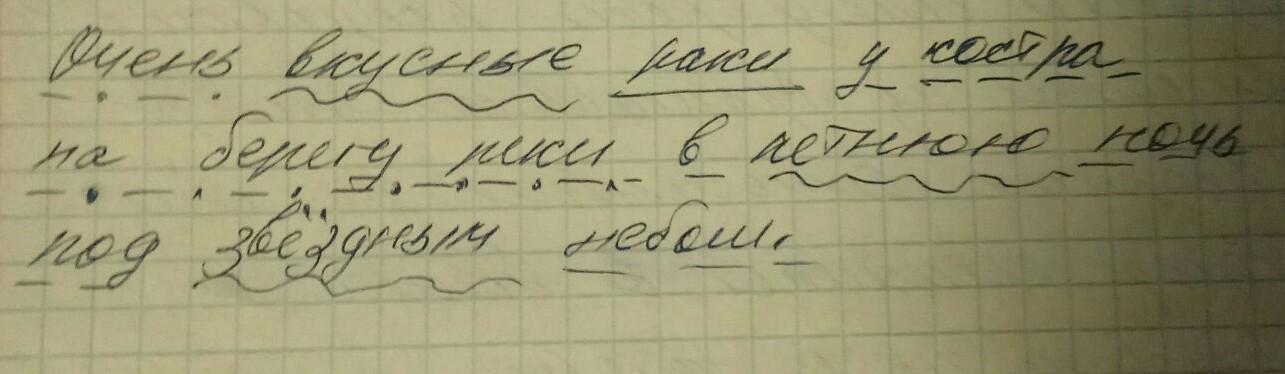 Очень вкусные раки у костра
на берегу реки в летнюю ночь
под звёздным небом.